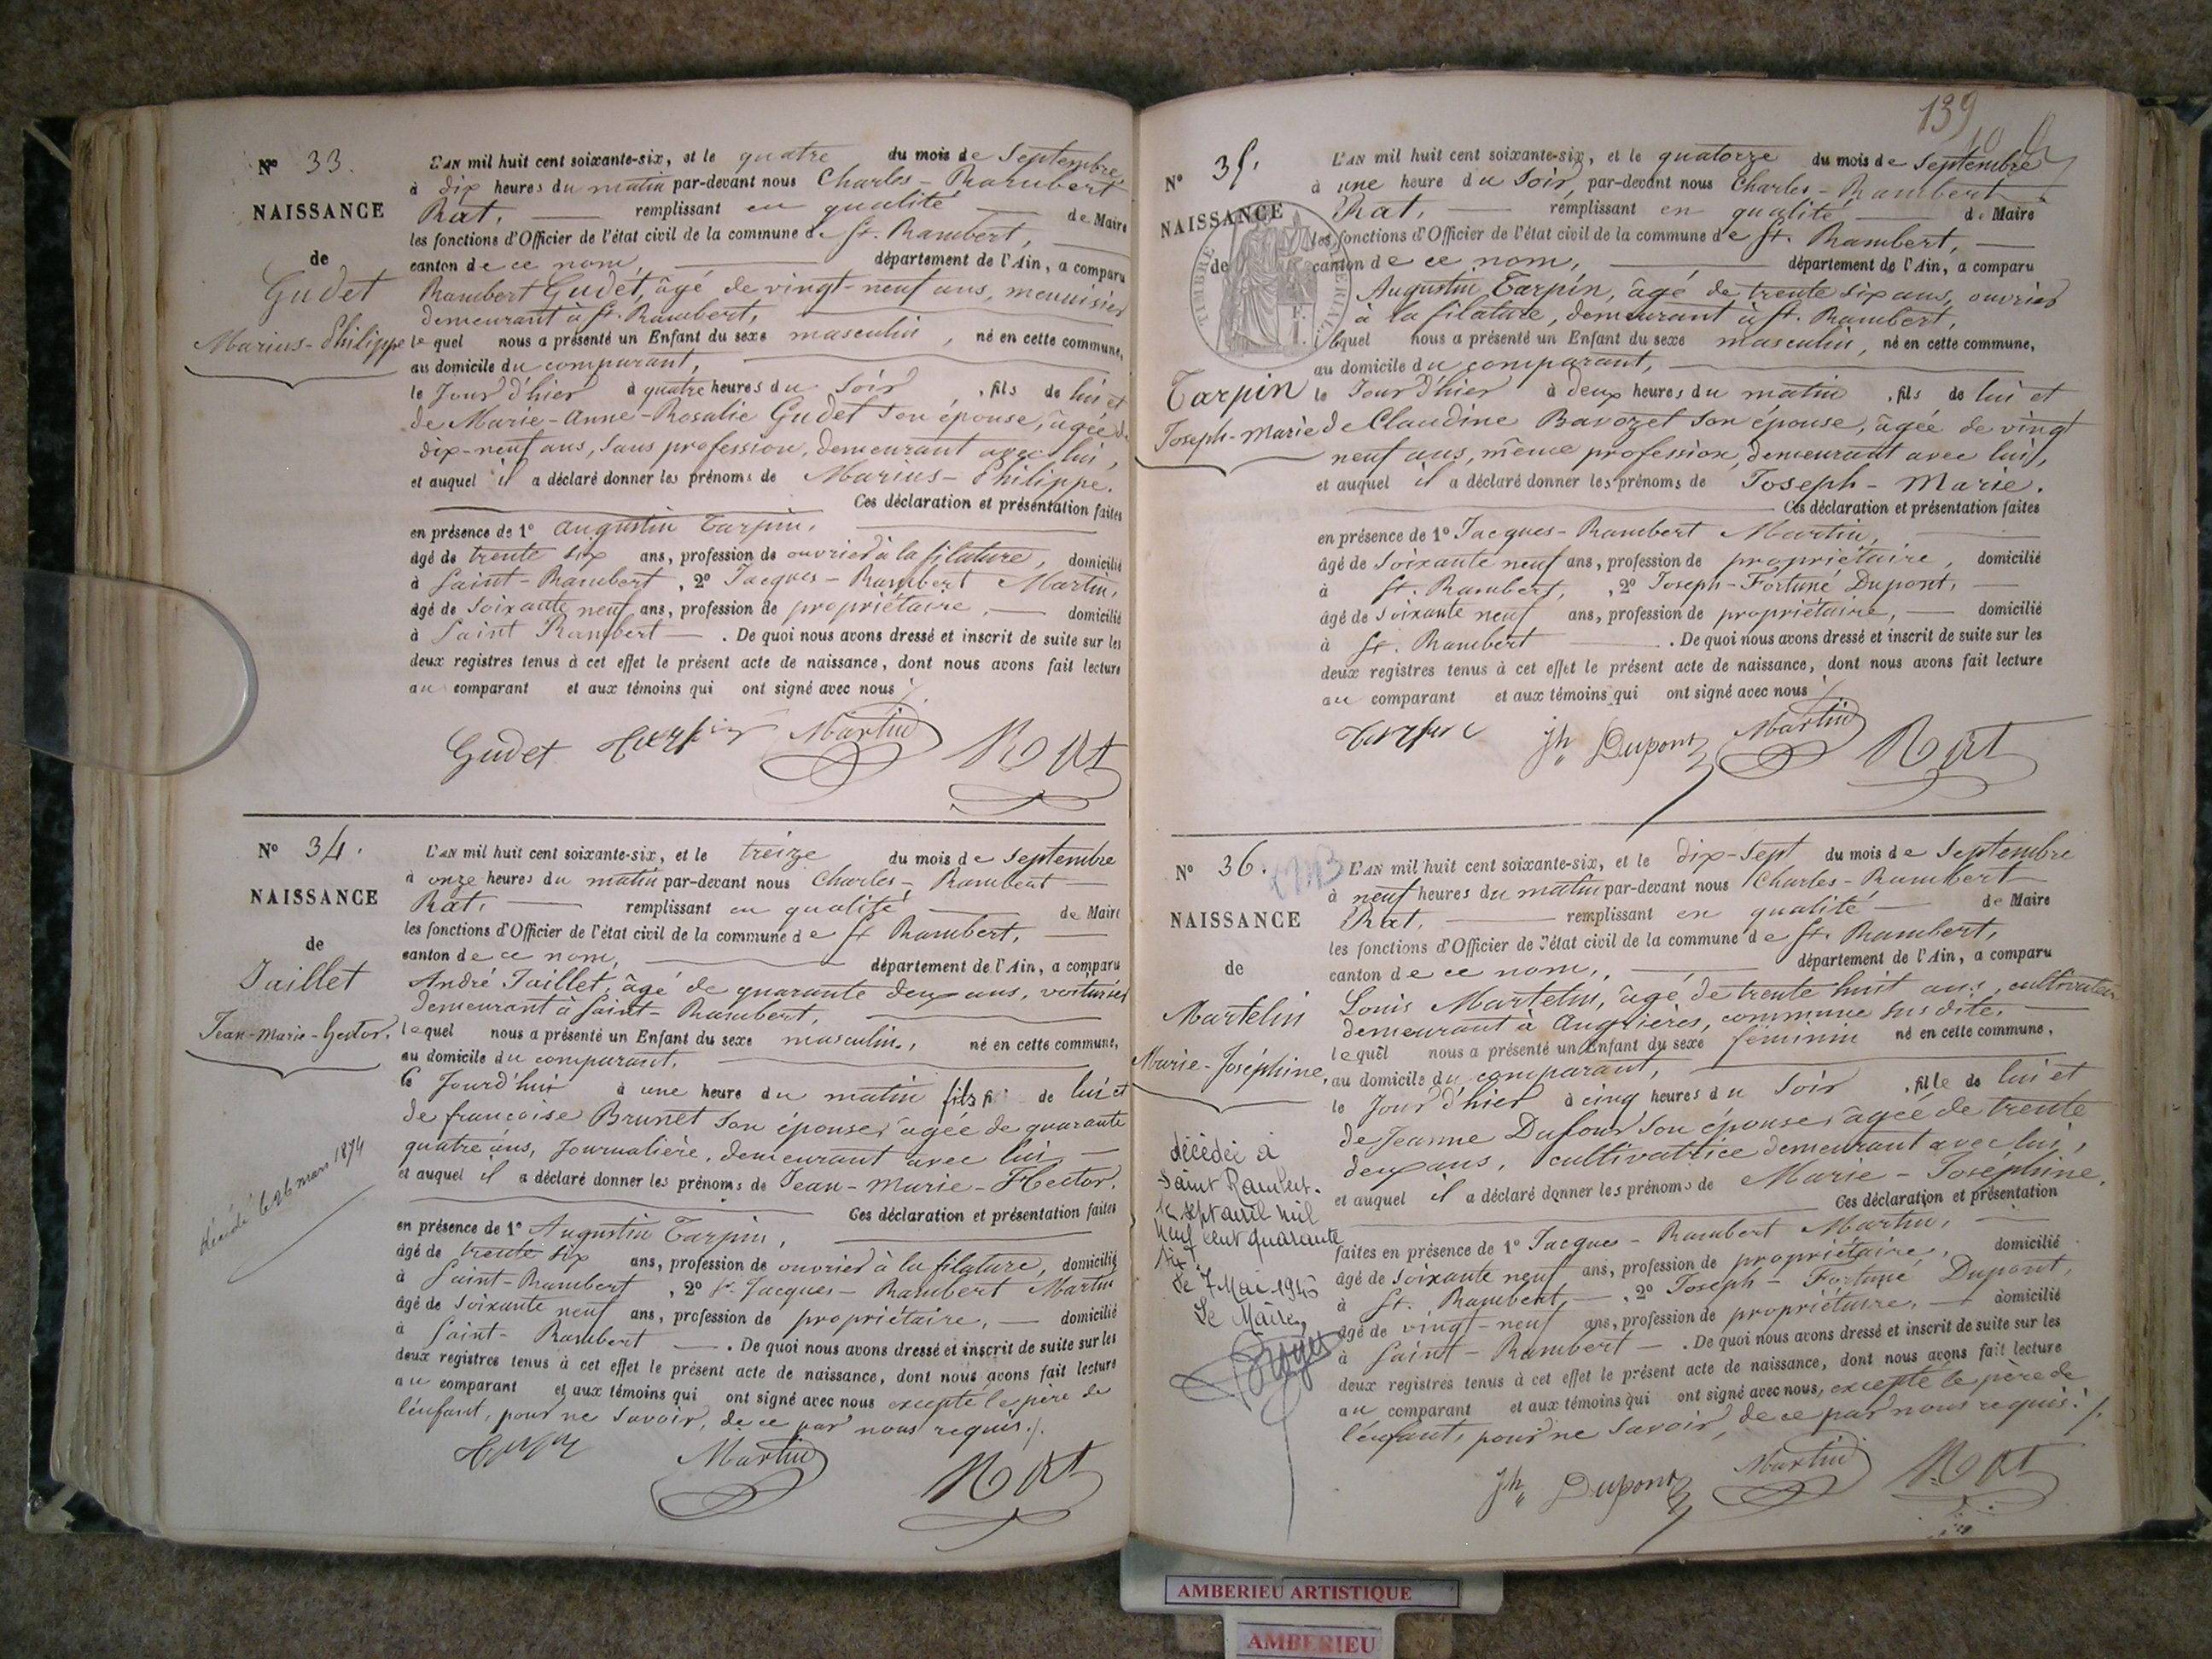 N° 33.
NAISSANCE
de
Gudet
Marius-Philippe
L'AN mil huit cent soixante-six, et le quatre du mois de Septembre
à dix heures du matin par-devant nous Charles-Rambert
Rat, remplissant en qualité de Maire
les fonctions d'Officier de l'état civil de la commune de St. Rambert,
canton de ce nom, département de l'Ain, a comparu
Rambert Gudet, âgé de vingt-neuf ans, menuisier
demeurant à St. Rambert,
lequel nous a présenté un Enfant du sexe masculin, né en cette commune,
au domicile du comparant,
le Jour d'hier à quatre heures du Soir, fils de lui et
de Marie-Anne-Rosalie Gudet son épouse, âgée de
dix-neuf ans, sans profession, demeurant avec lui,
et auquel il a déclaré donner les prénoms de Marius-Philippe.
Ces déclaration et présentation faites
en présence de 1° Augustin Tarpin,
âgé de trente six ans, profession de ouvrier à la filature, domicilié
à Saint-Rambert, 2° Jacques-Rambert Martin,
âgé de Soixante neuf ans, profession de propriétaire, domicilié
à Saint Rambert. De quoi nous avons dressé et inscrit de suite sur les
deux registres tenus à cet effet le présent acte de naissance, dont nous avons fait lecture
au comparant et aux témoins qui ont signé avec nous
Gudet Tarpin Martin Rat
N° 34.
NAISSANCE
de
Jaillet
Jean-Marie-Hector.
décédé le 26 mars 1874
L'AN mil huit cent soixante-six, et le treize du mois de Septembre
à onze heures du matin par-devant nous Charles-Rambert
Rat, remplissant en qualité de Maire
les fonctions d'Officier de l'état civil de la commune de St Rambert,
canton de ce nom, département de l'Ain, a comparu
André Jaillet, âgé de quarante deux ans, voiturier
demeurant à Saint-Rambert,
lequel nous a présenté un Enfant du sexe masculin, né en cette commune,
au domicile du comparant,
le Jourd'hui à une heure du matin fils de lui et
de francoise Brunet son épouse, âgée de quarante
quatre ans, Journalière, demeurant avec lui
et auquel il a déclaré donner les prénoms de Jean-Marie-Hector.
Ces déclaration et présentation faites
en présence de 1° Augustin Tarpin,
âgé de trente six ans, profession de ouvrier à la filature, domicilié
à Saint-Rambert, 2° Jacques-Rambert Martin
âgé de Soixante neuf ans, profession de propriétaire, domicilié
à Saint-Rambert. De quoi nous avons dressé et inscrit de suite sur les
deux registres tenus à cet effet le présent acte de naissance, dont nous avons fait lecture
au comparant et aux témoins qui ont signé avec nous excepté le père de
l'enfant, pour ne Savoir, de ce par nous requis./.
Martin Rat
139
N° 35.
NAISSANCE
de
TIMBRE IMPÉRIAL
Tarpin
Joseph-Marie
L'AN mil huit cent soixante-six, et le quatorze du mois de Septembre
à une heure du Soir, par-devant nous Charles-Rambert
Rat, remplissant en qualité de Maire
les fonctions d'Officier de l'état civil de la commune de St. Rambert,
canton de ce nom, département de l'Ain, a comparu
Augustin Tarpin, âgé de trente six ans, ouvrier
à la filature, demeurant à St. Rambert,
lequel nous a présenté un Enfant du sexe masculin, né en cette commune,
au domicile du comparant,
le Jour d'hier à deux heures du matin, fils de lui et
de Claudine Bavozet son épouse, âgée de vingt
neuf ans, même profession, demeurant avec lui,
et auquel il a déclaré donner les prénoms de Joseph-Marie.
Ces déclaration et présentation faites
en présence de 1° Jacques-Rambert Martin,
âgé de Soixante neuf ans, profession de propriétaire, domicilié
à St. Rambert, 2° Joseph-Fortuné Dupont,
âgé de Soixante neuf ans, profession de propriétaire, domicilié
à St. Rambert. De quoi nous avons dressé et inscrit de suite sur les
deux registres tenus à cet effet le présent acte de naissance, dont nous avons fait lecture
au comparant et aux témoins qui ont signé avec nous
Tarpin Jh Dupont Martin Rat
N° 36.
NAISSANCE
de
Martelin
Marie-Joséphine,
décédée à
Saint Rambert.
le sept avril mil
neuf cent quarante
le 7 Mai
Le Maire,
L'AN mil huit cent soixante-six, et le dix-Sept du mois de Septembre
à neuf heures du matin par-devant nous Charles-Rambert
Rat, remplissant en qualité de Maire
les fonctions d'Officier de l'état civil de la commune de St. Rambert,
canton de ce nom, département de l'Ain, a comparu
Louis Martelin, âgé de trente huit ans, cultivateur
demeurant à Angrières, commune susdite,
lequel nous a présenté un Enfant du sexe féminin né en cette commune,
au domicile du comparant,
le Jour d'hier à cinq heures du Soir, fille de lui et
de Jeanne Dufour Son épouse, âgée de trente
deux ans, cultivatrice demeurant avec lui,
et auquel il a déclaré donner les prénoms de Marie-Joséphine,
Ces déclaration et présentation
faites en présence de 1° Jacques-Rambert Martin,
âgé de soixante neuf ans, profession de propriétaire, domicilié
à St. Rambert, 2° Joseph-Fortuné Dupont,
âgé de vingt-neuf ans, profession de propriétaire, domicilié
à Saint-Rambert. De quoi nous avons dressé et inscrit de suite sur les
deux registres tenus à cet effet le présent acte de naissance, dont nous avons fait lecture
au comparant et aux témoins qui ont signé avec nous, excepté le père de
l'enfant, pour ne Savoir, de ce par nous requis./.
Jh Dupont Martin Rat
AMBERIEU ARTISTIQUE
AMBERIEU